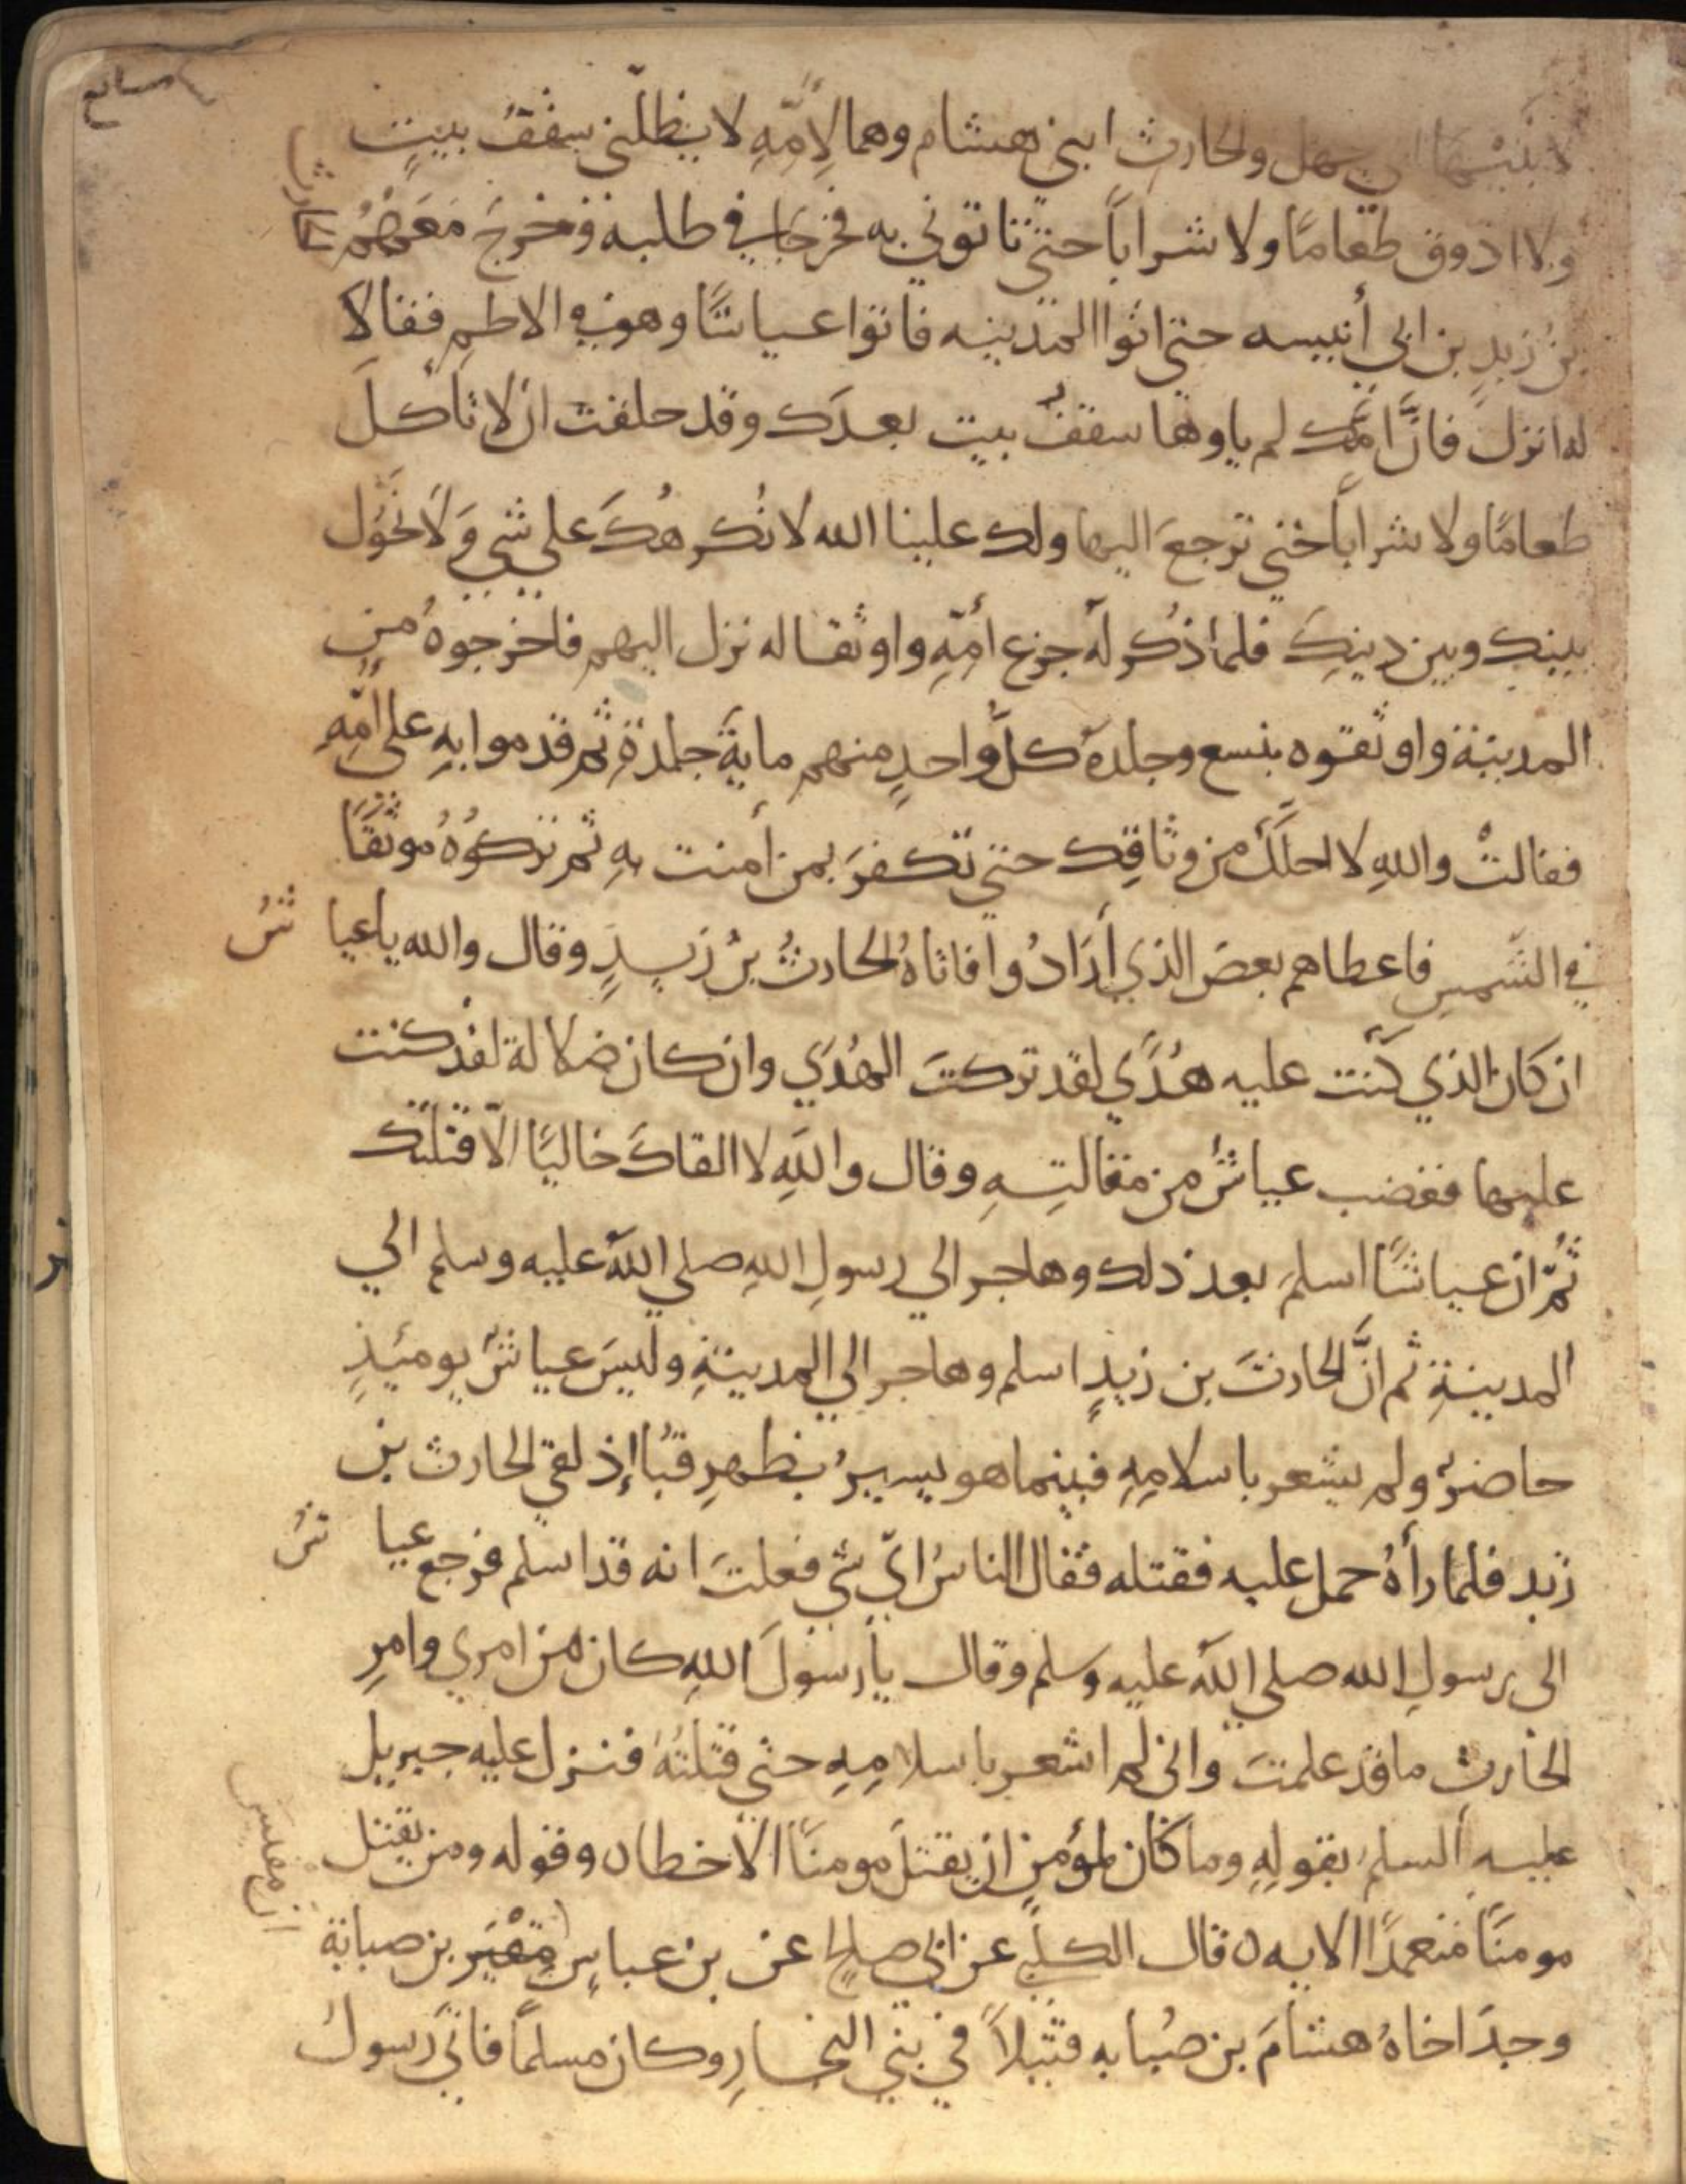 لابنيها ابي جهل والحارث ابني هشام وهما لِامِّهِ لا يظلّني سقفُ بيتٍ
ولا اذوق طعامًا ولا شراباً حتى تاتوني به فخرجا في طلبه وخرجَ مَعَهُمُ الحارث
بن زَيدِ بن ابي أنيسه حتى اتوا المدينه فاتوا عياشًا وهو في الاطمِ فقالا
له انزل فانَّ امَّك لم ياوها سقفُ بيت بعدَك وقد حلفت ان لا تأكلَ
طعامًا ولا شراباً حتى ترجعَ اليها ولك علينا الله لا نُكرهُكَ على شي وَلَا نَحُول
بينك وبين دينِكَ فلما ذُكر لهُ جزع أمّهِ واوثقا له نزل اليهم فاخرجوهُ من
المدينة واوثقوه بنسع وجلدهُ كلُّ واحدٍ منهم مايةَ جلدةٍ ثم قدموا بهِ على امّهِ
فقالتْ واللهِ لا احلَّكَ من وثاقِك حتى تكفرَ بمن أمنت بهِ ثم تركوُهُ موثَقًا
في الشَّمسِ فاعطاهم بعضَ الذي أرَادُوا فاتاهُ الحارثُ بنُ زَيدٍ وقال والله يا عياشُ
ان كان الذي كنت عليه هُدًي لقد تركتَ الهُدَي وان كان ضلالة لقد كنت
عليها فغضب عياشُ من مقالتِهِ وقال واللهِ لا القاكَ خاليًا الّا قتلتُك
ثُمَّ ان عياشًا اسلمَ بعد ذلك وهاجر الي رسولِ اللهِ صلي اللهُ عليه وسلم الي
المدينةِ ثم انَّ الحارثَ بن زيدٍ اسلم وهاجر الي المدينةِ وليسَ عياشُ يوميَذٍ
حاضرٌ ولم يشعر باسلامِهِ فبينما هو يسيرُ بظهرِ قُبَا إذ لقي الحارث بن
زيد فلما رأهُ حمل عليه فقتله فقال الناسُ ايّ شي فعلتَ انه قد اسلم فرجع عياشُ
الى رسولِ الله صلي اللهُ عليه وسلم وقال يا رسولَ اللهِ كان من امري وامرِ
الحارث ما قد علمتَ واني لم اشعر باسلامِهِ حتى قتلتُهُ فنزل عليه جبريل
عليه السلم بقولِهِ وما كان لمؤمنٍ ان يقتلَ مومنًا الا خطاه وقوله ومن يقتل
مومنًا متعمدًا الايه ه قال الكلبي عن ابي صالح عن بن عباسٍ مِقْيَس بن صبابة
وجدَ اخاهُ هشامَ بن صُبابه قتيلاً في بني النجارِ وكان مسلمًا فاتَي رسول